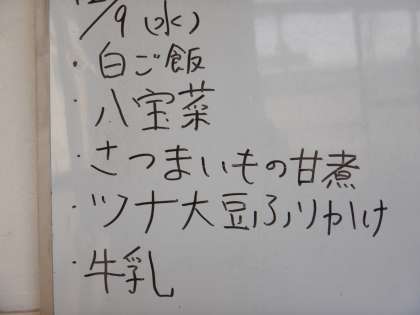 12/9(水)
・白ご飯
・八宝菜
・さつまいもの甘煮
・ツナ大豆ふりかけ
・牛乳